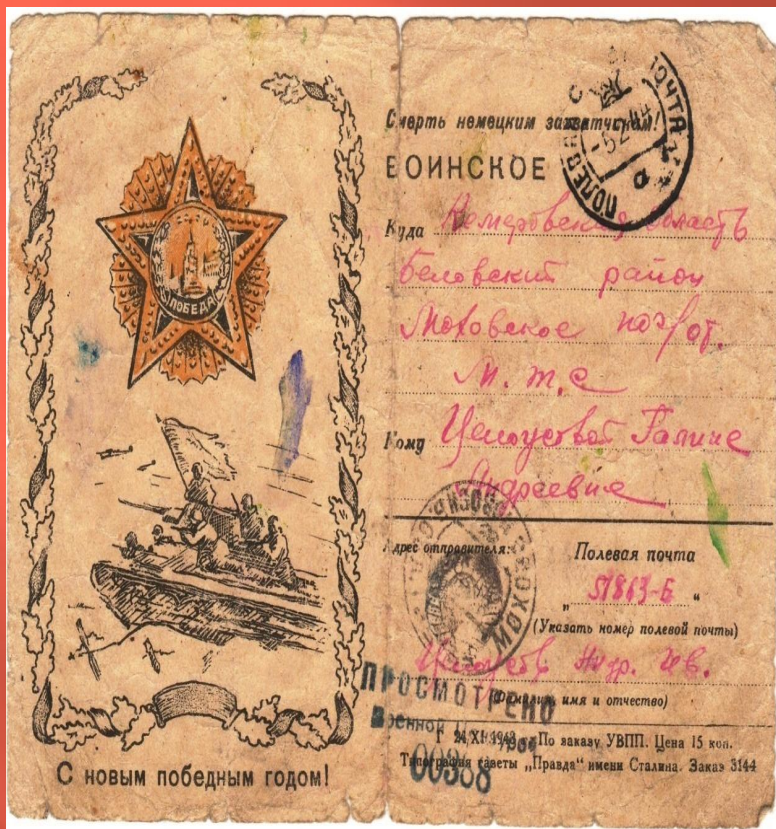 ПОБЕДА
С новым победным годом!
Смерть немецким захватчикам!
ВОИНСКОЕ
ПОЛЕВАЯ ПОЧТА
Куда Кемеровская область
Беловский район
Моховское поч/от.
М. т. с
Кому Целоусовой Галине
Андреевне
Адрес отправителя:
Полевая почта
„ 51863-Б “
(Указать номер полевой почты)
Андр. Ив.
(Фамилия, имя и отчество)
ПРОСМОТРЕНО
Военной
00388
Г 24.XI.1943 г. По заказу УВПП. Цена 15 коп.
Типография газеты „Правда“ имени Сталина. Заказ 3144